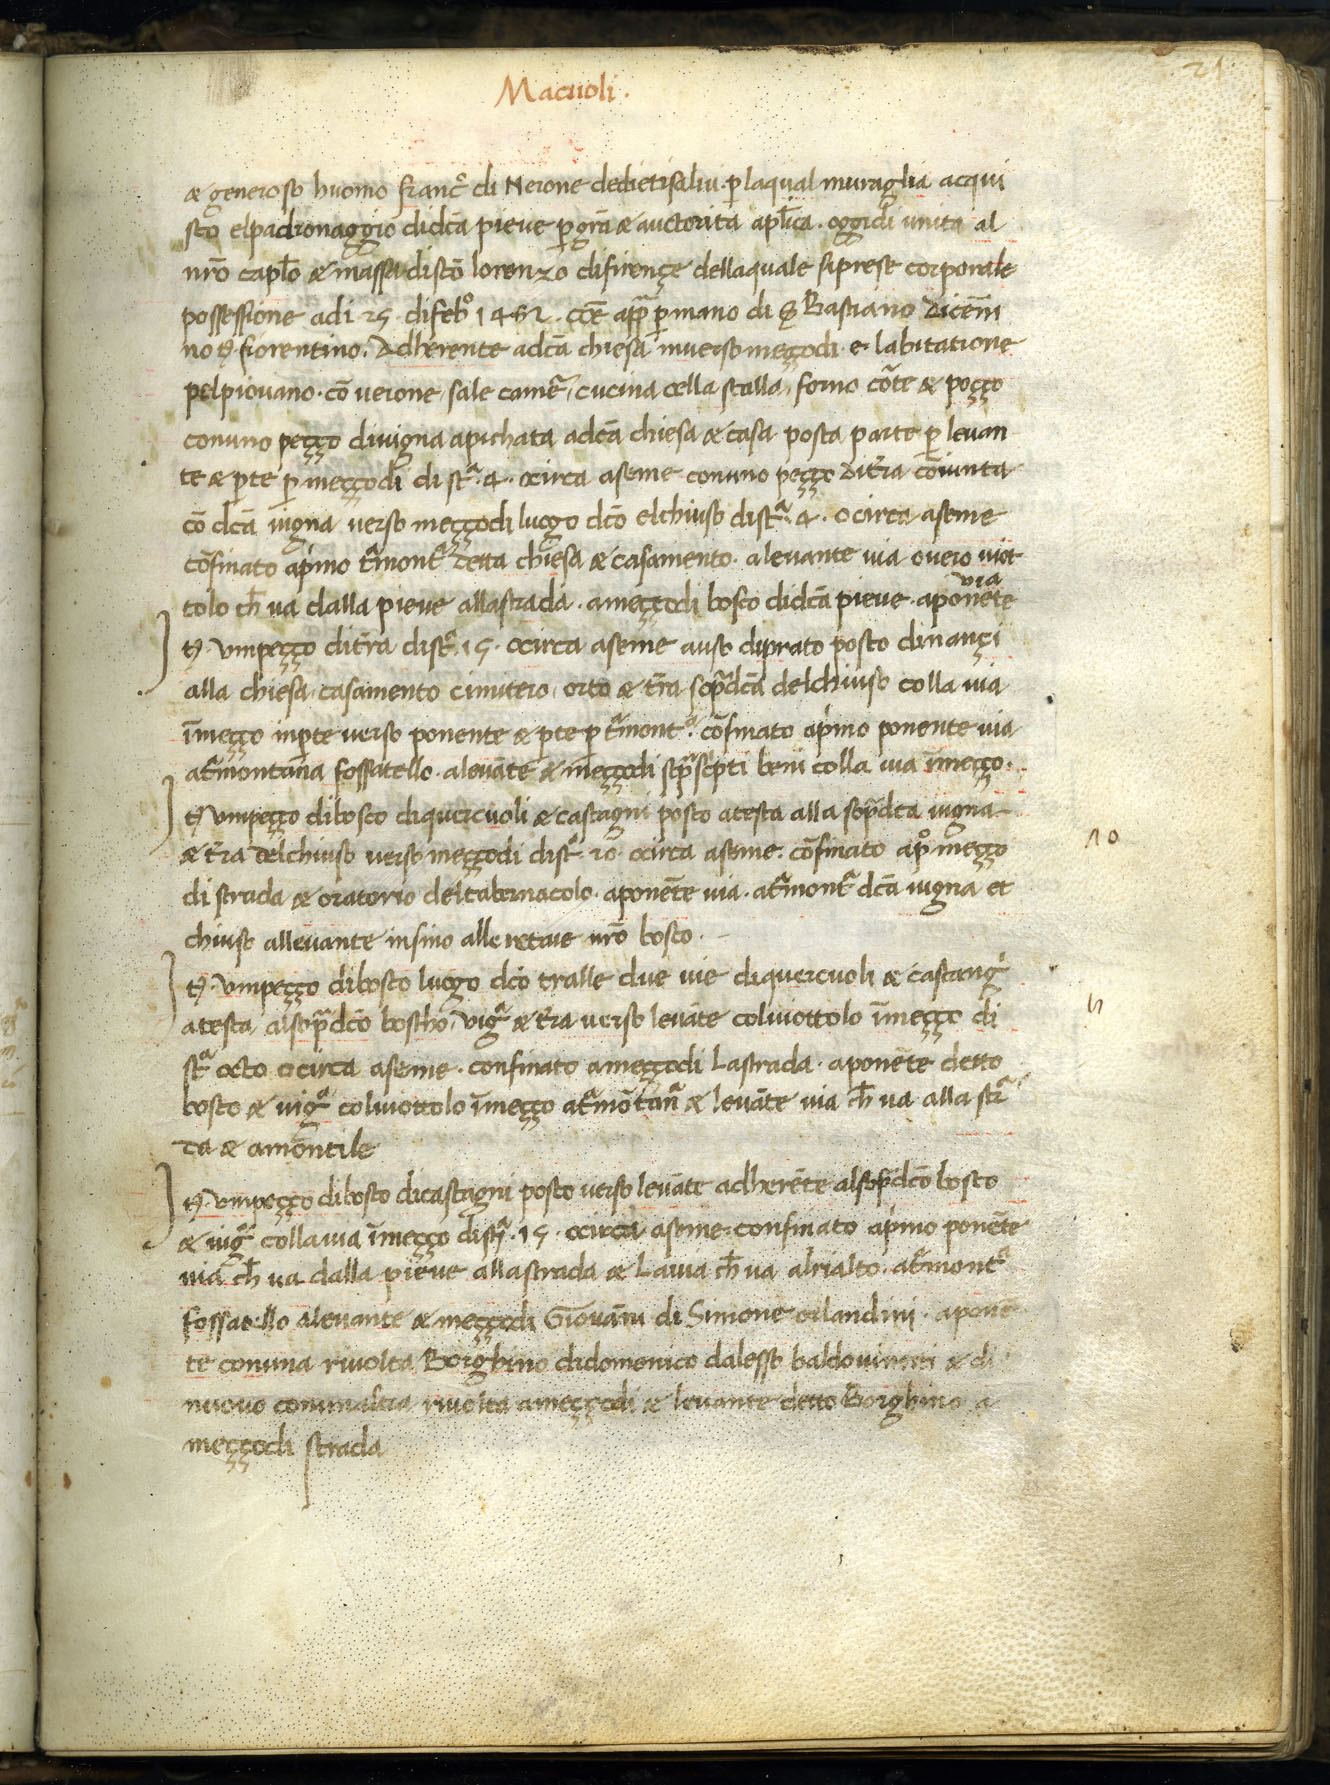 21
Macuoli.
& generoso huomo Franc.º di Nerone dedietisalui. p̄ laqual muraglia acqui
sto elpadronaggio didcā pieve p̄ grā & auctorita aplica. oggidi unita al
nr̄o caplō & massa discō lorenzo difirençe dellaquale siprese corporale
possessione adi 25. difebº 1462. coē app̄ p̄ mano di Bastiano
no fiorentino. Adherente adcā chiesa inverso meççodi. e. labitatione
pelpiovano. cō verone, sale camē, cucina cella stalla, forno cōte & poçço
conuno peçço diuigna apichata adcā chiesa & casa posta parte p̄ levan
te & p̄te p̄ meççodi di stª. 4. ocirca aseme conuno peçço ditr̄a cōiunta
cō dcā uigna verso meççodi luogo dcō elchiuso distª. 4. ocirca aseme
cōfinato ap̄imo tr̄montª detta chiesa & casamento. alevante via overo uiot
tolo ch̄ va dalla pieve allastrada. ameççodi bosco didcā pieve. aponēte via
Itē. vmpeçço ditr̄a distª. 15. ocirca aseme auso diprato posto dinançi
alla chiesa, casamento cimitero, orto & tr̄a sop̄dcā delchiuso colla via
īmeçço inp̄te verso ponente & p̄te p̄ tr̄montª. cōfinato ap̄imo ponente via
atr̄montana fossatello. alevāte & meççodi sp̄scp̄ti beni colla via īmeçço.
Itē vmpeçço dibosco diquercuoli & castagni posto atesta alla sop̄dca uigna
& tr̄a delchiuso verso meççodi distª. 20. ocirca aseme. cōfinato ap̄º meçço
di strada & oratorio deltabernacolo. aponēte via. atr̄montª dcā uigna et
chiuso allevante insino alle nr̄o bosco.
Itē. vmpeçço dibosco luogo dcō tralle due vie diquercuoli & castangi
atesta, alsop̄dcō boscho, vigª & tr̄a verso levāte coluiottolo īmeçço di
stª octo ocirca aseme. confinato ameççodi Lastrada. aponēte detto
bosco & uigª coluiottolo īmeçço atr̄mōtanª & levāte via ch̄ va alla strª
da & amōntile
Itē. vmpeçço dibosco dicastagni posto verso levāte adherēte alsop̄dcō bosco
& uigª collavia īmeçço distª. 15. ocirca aseme. confinato ap̄imo ponēte
via ch̄ va dalla pieve allastrada & Lavia ch̄ va alrialto. atr̄montª
fossatello alevante & meççodi Giovāni di Simone orlandini. aponē
te conuna rivolta Borghino didomenico dalesso baldovinetti & di
nuovo conunaltra rivolta ameççodi & levante detto Borghino a
meççodi strada
10
h